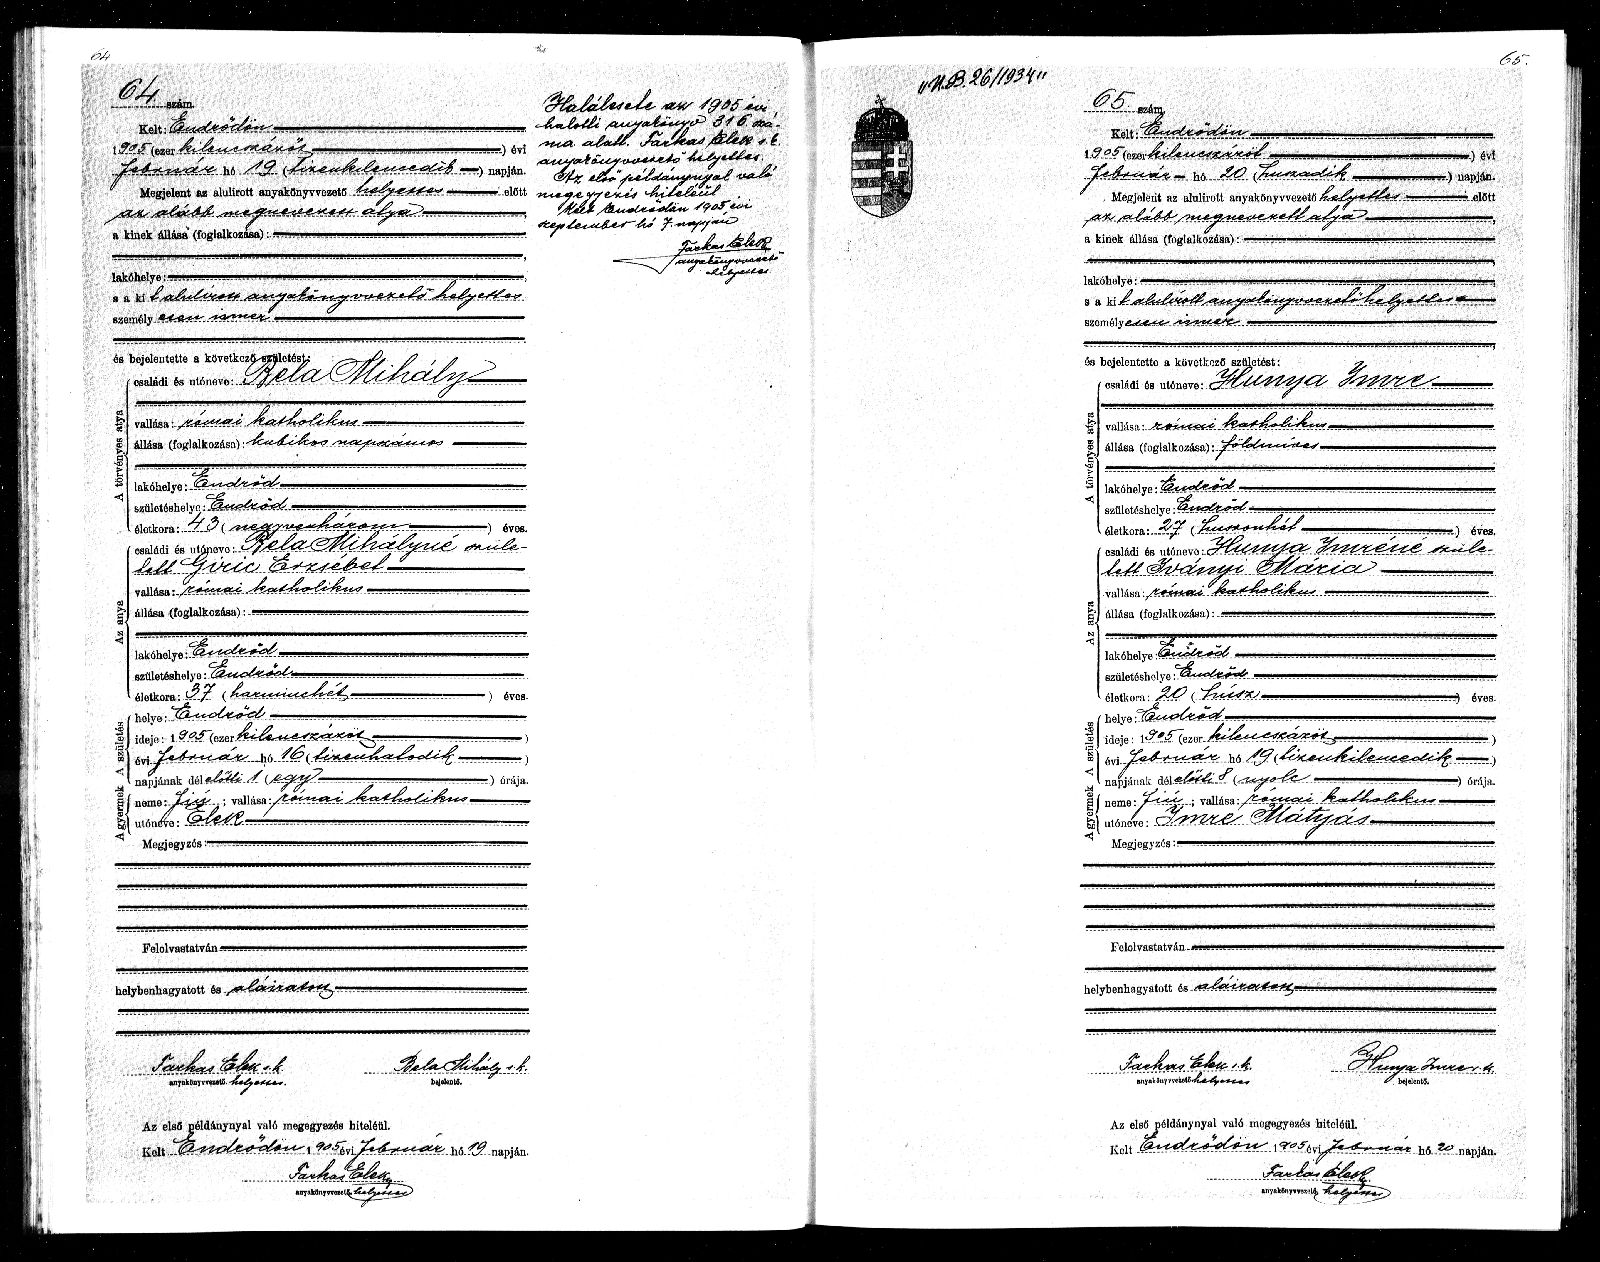 64
64 szám.
Kelt: Endrődön
1905 (ezer kilenczázöt) évi
február hó 19 (tizenkilencedik) napján.
Megjelent az alulirott anyakönyvvezető helyettes előtt
az alább megnevezett atya,
a kinek állása (foglalkozása):
lakóhelye:
s a kit alulirott anyakönyvvezető helyettes
személyesen ismer
és bejelentette a következő születést:
A törvényes atya
családi és utóneve: Bela Mihály
vallása: római katholikus
állása (foglalkozása): kubikos napszámos
lakóhelye: Endrőd
születéshelye: Endrőd
életkora: 43 (negyvenhárom) éves.
Az anya
családi és utóneve: Bela Mihályné szüle-
tett Giric Erzsébet
vallása: római katholikus
állása (foglalkozása):
lakóhelye: Endrőd
születéshelye: Endrőd
életkora: 37 (harminchét) éves.
A születés
helye: Endrőd
ideje: 1905 (ezer kilencszázöt)
évi február hó 16 (tizenhatodik)
napjának délelőtti 1 (egy) órája.
A gyermek
neme: fiú; vallása: római katholikus
utóneve: Elek
Megjegyzés:
Felolvastatván
helybenhagyatott és aláiratott
Farkas Elek s.k. Bela Mihály s.k.
anyakönyvvezető helyettes. bejelentő.
Az első példánynyal való megegyezés hiteléül.
Kelt Endrődön 1905 évi február hó 19 napján.
Farkas Elek
anyakönyvvezető helyettes
Halálesete az 1905 évi
halotti anyakönyv 316 szá-
ma alatt. Farkas Elek s.k.
anyakönyvvezető helyettes.
Az első példánynyal való
megegyezés hiteléül
Kelt Endrődön 1905 évi
szeptember hó 7. napján
Farkas Elek
anyakönyvvezető
helyettes
65.
„N.B. 26/1934"
65 szám.
Kelt: Endrődön
1905 (ezer kilenczázöt) évi
február hó 20 (huszadik) napján.
Megjelent az alulirott anyakönyvvezető helyettes előtt
az alább megnevezett atya,
a kinek állása (foglalkozása):
lakóhelye:
s a kit alulirott anyakönyvvezető helyettes
személyesen ismer
és bejelentette a következő születést:
A törvényes atya
családi és utóneve: Hunya Imre
vallása: római katholikus
állása (foglalkozása): földmives
lakóhelye: Endrőd
születéshelye: Endrőd
életkora: 27 (huszonhét) éves.
Az anya
családi és utóneve: Hunya Imréné szüle-
tett Iványi Mária
vallása: római katholikus
állása (foglalkozása):
lakóhelye: Endrőd
születéshelye: Endrőd
életkora: 20 (húsz) éves.
A születés
helye: Endrőd
ideje: 1905 (ezer kilencszázöt)
évi február hó 19 (tizenkilencedik)
napjának délelőtti 8 (nyolc) órája.
A gyermek
neme: fiú; vallása: római katholikus
utóneve: Imre Mátyás
Megjegyzés:
Felolvastatván
helybenhagyatott és aláiratott
Farkas Elek s.k. Hunya Imre s.k.
anyakönyvvezető helyettes bejelentő.
Az első példánynyal való megegyezés hiteléül.
Kelt Endrődön 1905 évi február hó 20 napján.
Farkas Elek
anyakönyvvezető helyettes